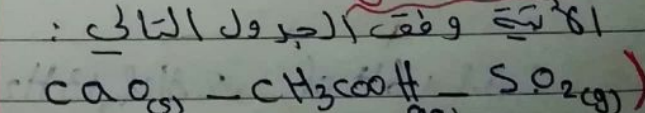 الآتية وفق الجدول التالي :
CaO(s) - CH3COOH - SO2(g))